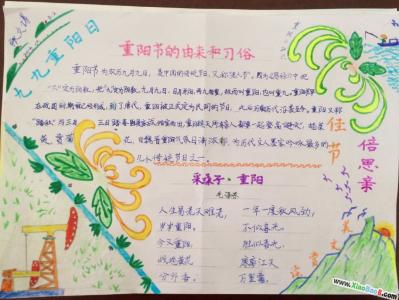 九九重阳日
重阳节的由来和习俗
重阳节为农历九月九日,是中国的传统节日,又称"老人节"。因为《易经》中把
"六"定为阴数,把"九"定为阳数,九月九日,日月并阳,两九相重,故而叫重阳,也叫重九。重阳节早
在战国时期就已经形成,到了唐代,重阳被正式定为民间的节日,此后历朝历代沿袭至今。重阳又称
"踏秋"与三月三日踏春皆是家族倾室而出,重阳这天所有亲人都要一起登高"避灾",插茱
萸、赏菊花。
几个传统节日之一。
佳节
倍思亲
采桑子·重阳
毛泽东
人生易老天难老,
岁岁重阳。
今又重阳,
战地黄花
分外香。
一年一度秋风劲,
不似春光。
胜似春光,
寥廓江天
万里霜。
www.XiaoBao8.com